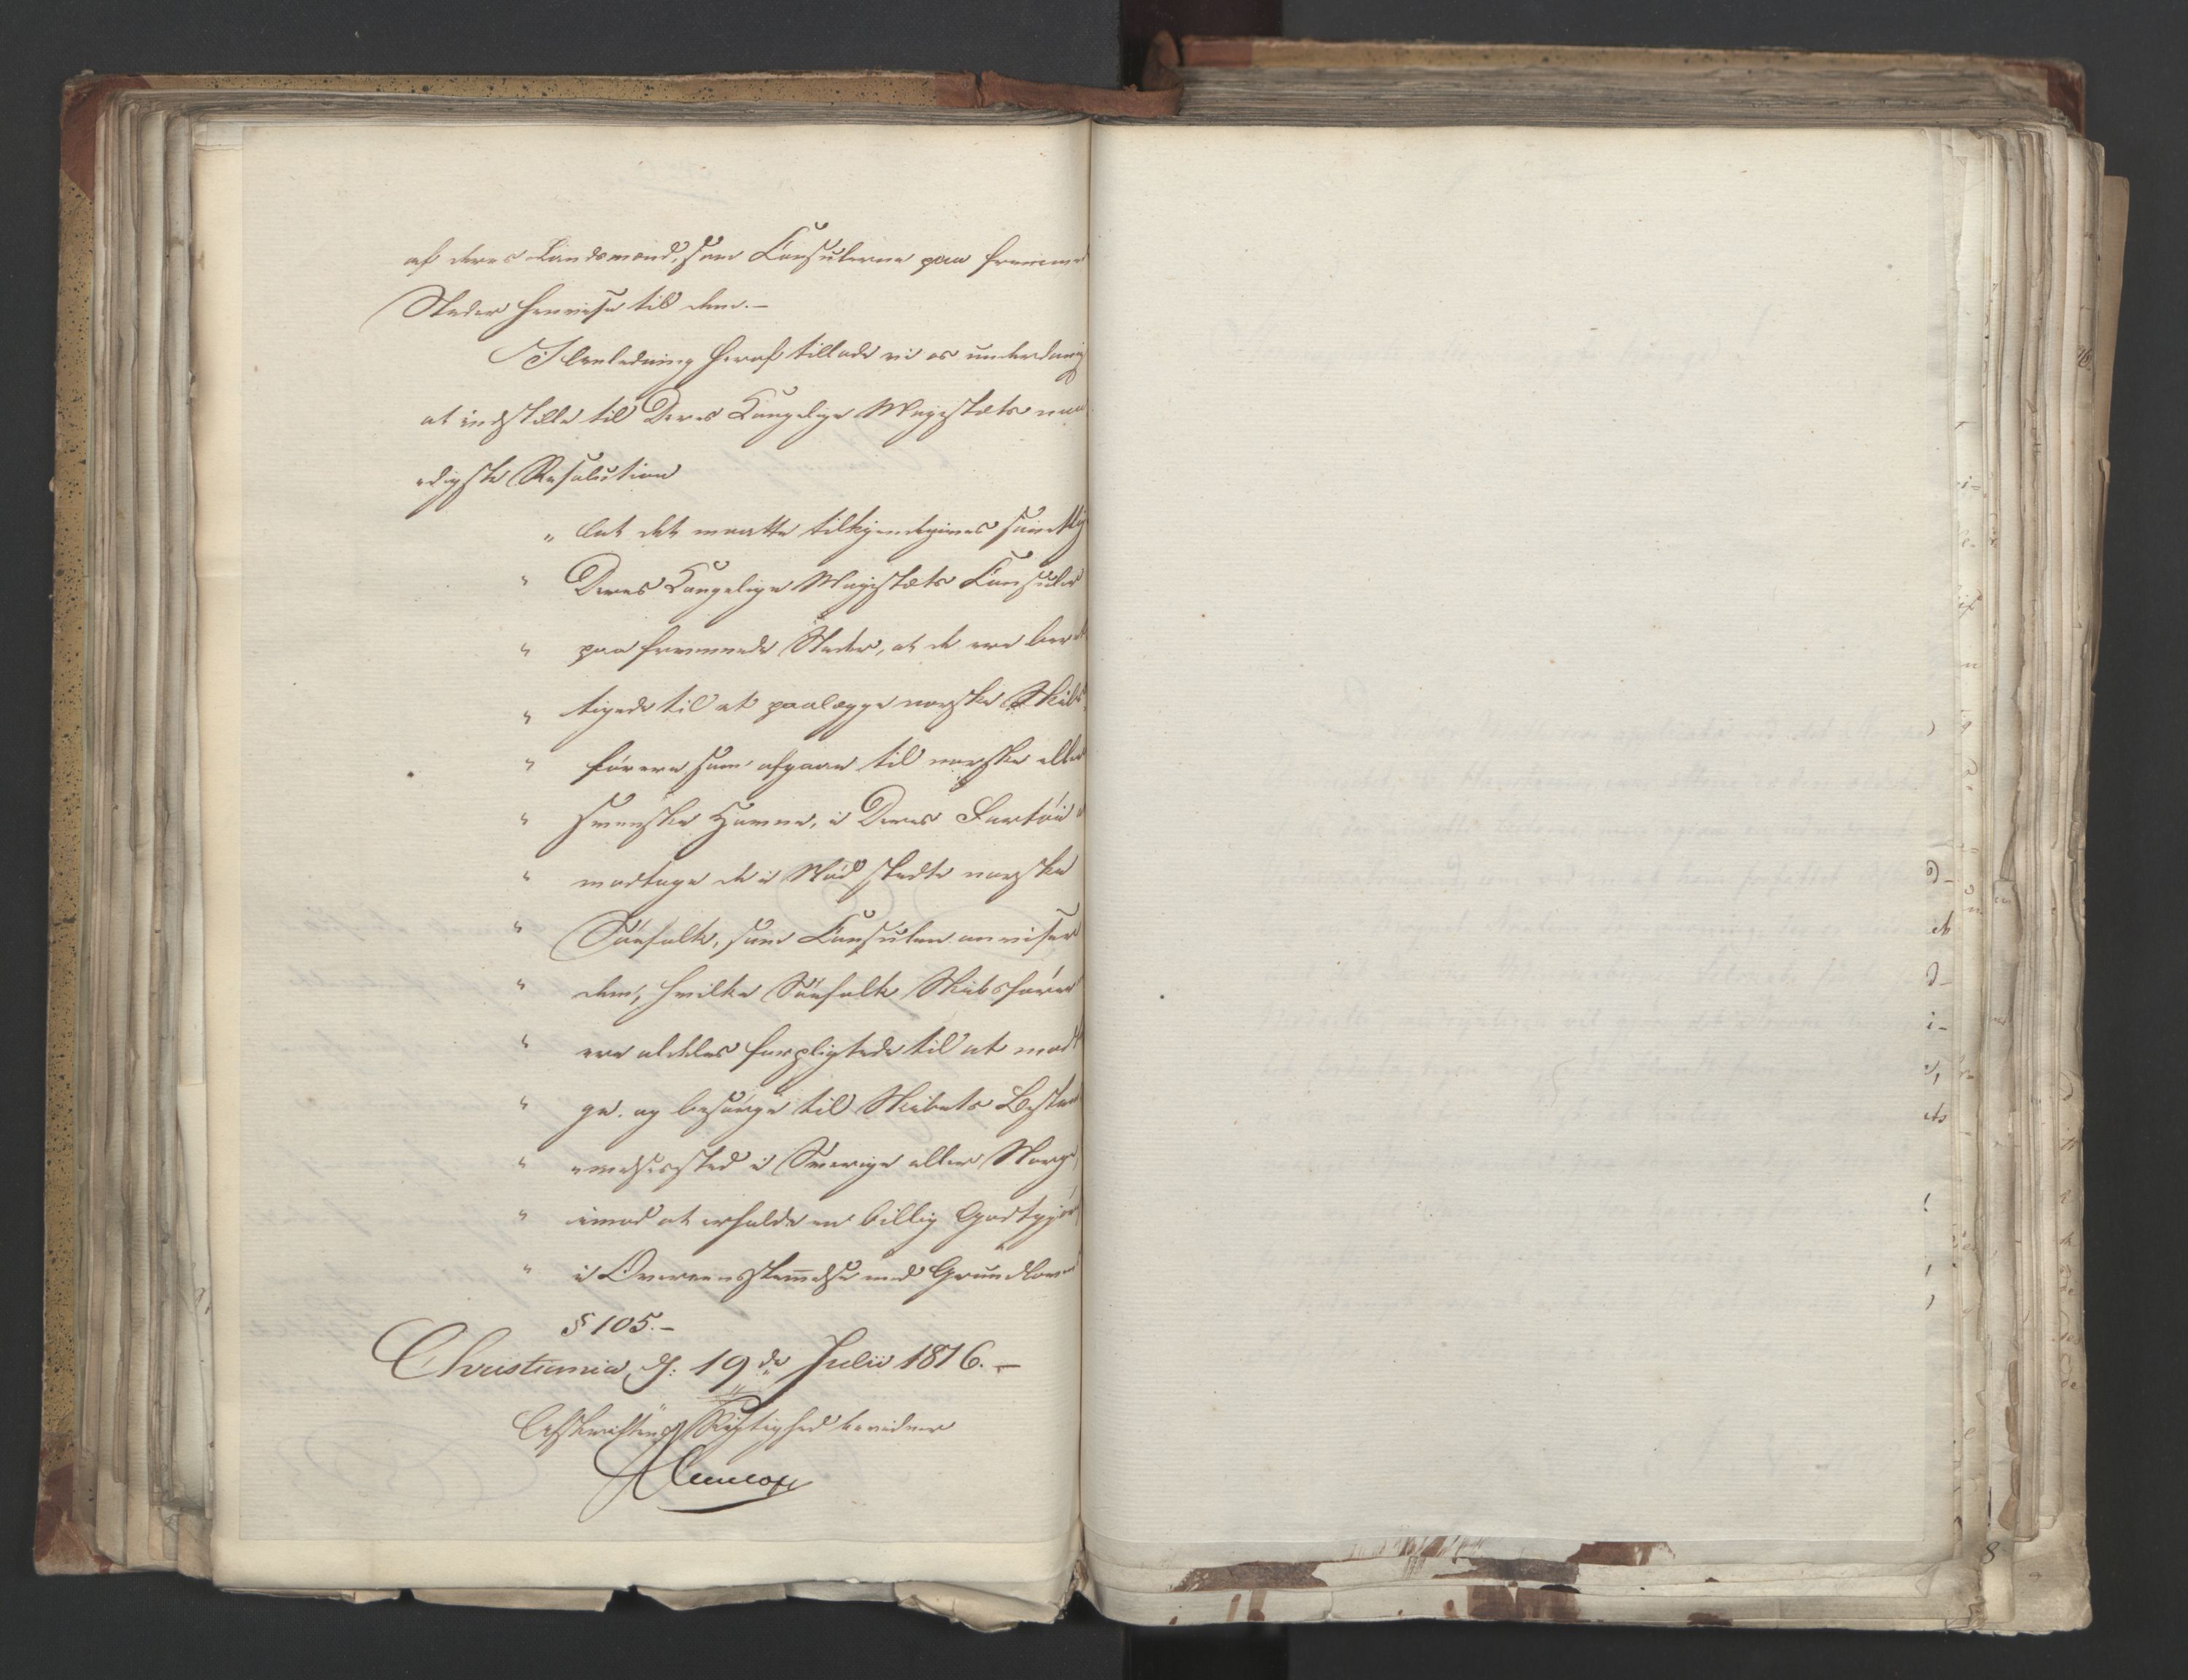 af deres Landsmænd, som Consulerne paa fremme
Steder henvise til dem.-
I Anledning heraf tillade vi os underdanig
at indstille til Deres Kongelige Majestæts naa
digste Resolution
„ At det maatte tilkjendegives samtlig
" Deres Kongelige Majestæts Consuler
" paa fremmede Steder, at de ere beret
" tigede til at paalægge norske Skibs
" förere som afgaae til norske eller
" svenske Havne, i Deres Fartöi
" modtage de i Nöd stedte norske
" Söefolk, som Consulen anviser
" dem, hvilke Söefolk Skibsförer
" ere aldeles forpligtede til at modt
" ge og besörge til Skibets Bestem
" melsessted i Sverige eller Norge,
" imod at erholde en billig Godtgjör
" i Overeensstem̅else med Grundloven
§ 105.-
Christiania, d: 19de Julii 1816.-
Afskriftens Rigtighed bevidner